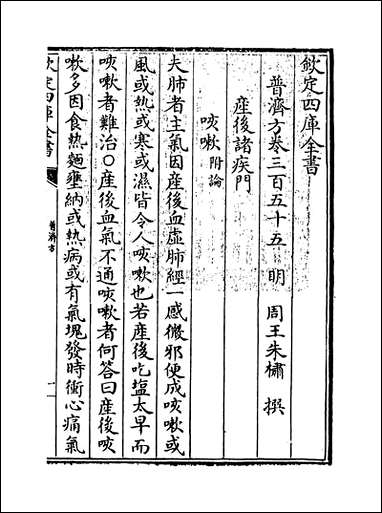 欽定四庫全書
普濟方卷三百五十五 明 周王朱橚 撰
產後諸疾門
咳嗽 附論
夫肺者主氣因產後血虛肺經一感微邪便成咳嗽或
風或熱或寒或濕皆令人咳嗽也若產後吃塩太早而
咳嗽者難治〇產後血氣不通咳嗽者何答曰產後咳
嗽多因食熱麵壅納或熱病或有氣塊發時衝心痛氣
欽定四庫全書
普濟方
一